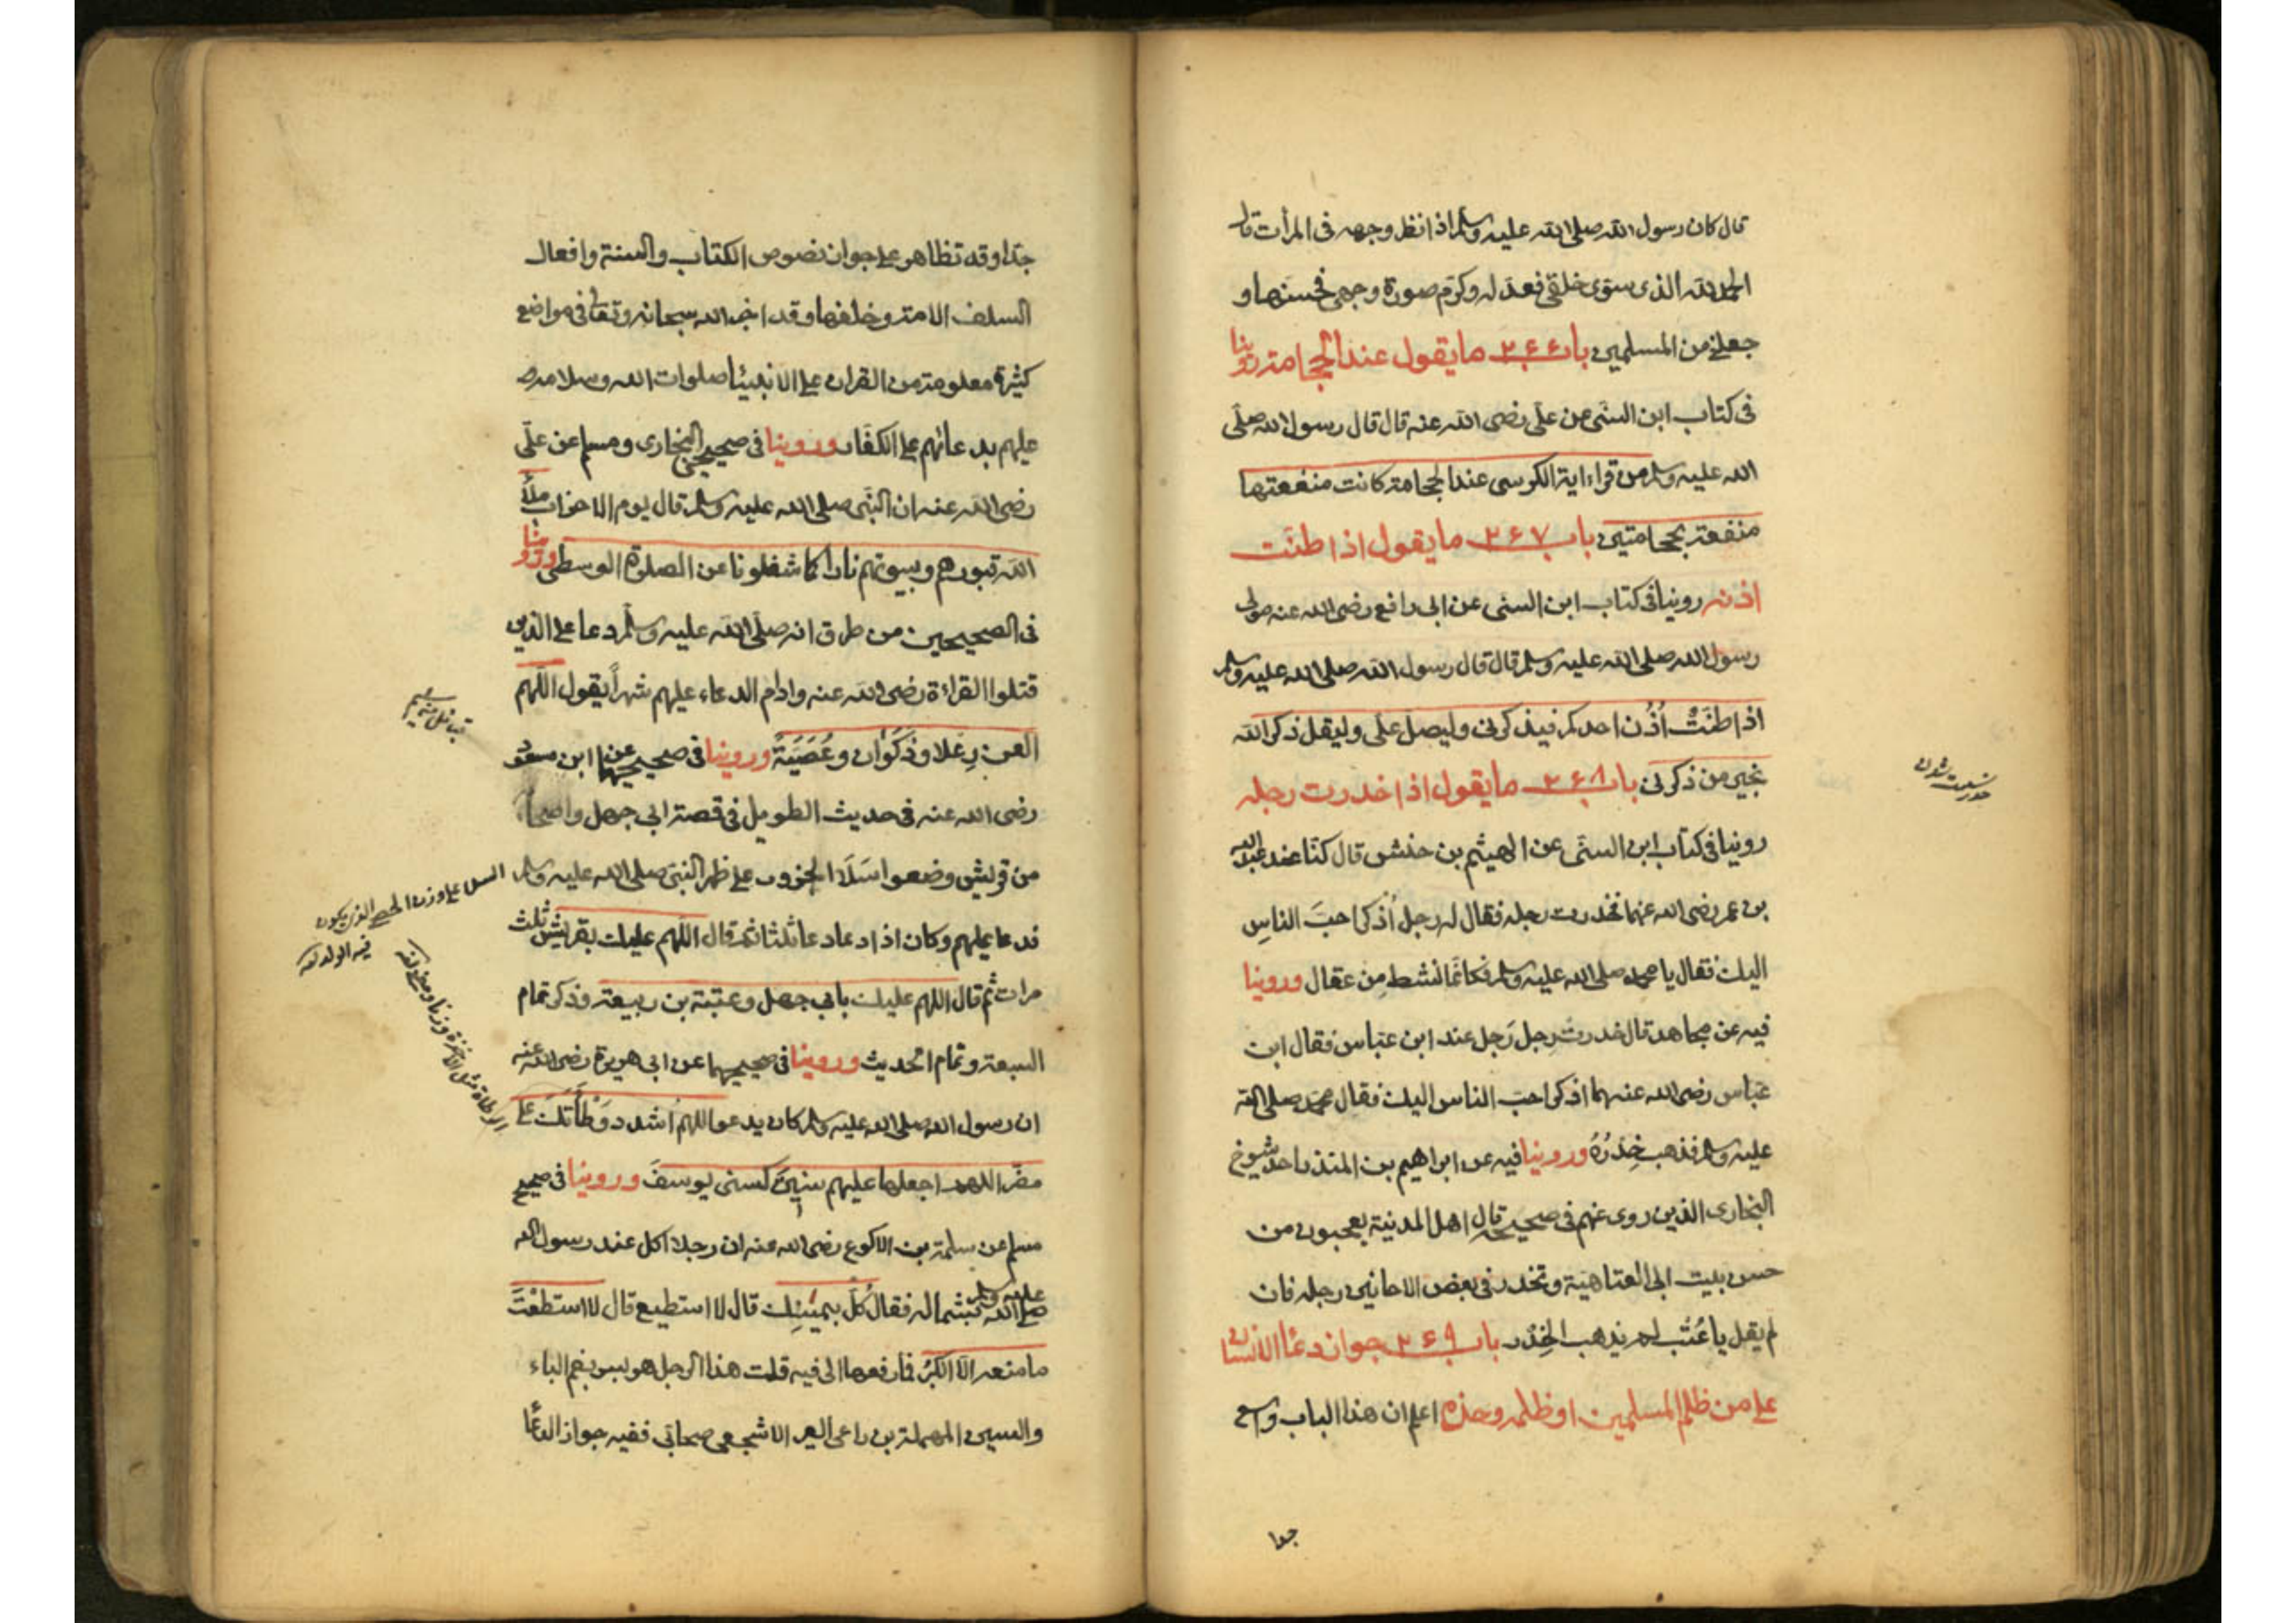 قال كان رسول الله صلى الله عليه وسلم اذا نظر وجهه فى المرأت قال
الحمد لله الذى سوى خلقى فعدله وكرم صورة وجهى فحسنها و
جعلنى من المسلمين باب ٢٦٦ ما يقول عند الحجامة روينا
فى كتاب ابن السنى عن على رضى الله عنه قال قال رسول الله صلى
الله عليه وسلم من قراء اية الكرسى عند الحجامة كانت منفعتها
منفعة بحجامتين باب ٢٦٧ ما يقول اذا طنت
اذنه روينا فى كتاب ابن السنى عن ابى رافع رضى الله عنه مولى
رسول الله صلى الله عليه وسلم قال قال رسول الله صلى الله عليه وسلم
اذا طنت أذن احدكم فيذكرنى وليصل على وليقل ذكر الله
بخير من ذكرنى باب ٢٦٨ ما يقول اذا خدرت رجله
روينا فى كتاب ابن السنى عن الهيثم بن حنش قال كنا عند عبد الله
بن عمر رضى الله عنهما فخدرت رجله فقال له رجل أذكر احب الناس
اليك فقال يا محمد صلى الله عليه وسلم فكانما نشط من عقال وروينا
فيه عن مجاهد قال خدرت رجل رجل عند ابن عباس فقال ابن
عباس رضى الله عنهما اذكر احب الناس اليك فقال محمد صلى الله
عليه وسلم فذهب خدره وروينا فيه عن ابراهيم بن المنذر احد شيوخ
البخارى الذين روى عنهم فى صحيحه قال اهل المدنية يعجبون من
حسن بيت ابى العتاهية وتخدر فى بعض الاحانين رجله فان
لم يقل يا عتب لم يذهب الخدر باب ٢٦٩ جواز دعا الانسان
على من ظلم المسلمين او ظلمه وحذه اعلم ان هذا الباب واسع
جدا
جدا وقد تظاهر على جوازه نصوص الكتاب والسنة وافعال
السلف الامة وخلفها وقد اخبر الله سبحانه وتعالى فى مواضع
كثيرة معلومة من القران على الانبيئا صلوات الله وسلامه
عليهم بدعائهم على الكفار وروينا فى صحيحى البخارى ومسلم عن على
رضى الله عنه ان النبى صلى الله عليه وسلم قال يوم الاحزاب ملأ
الله قبورهم وبيوتهم نارا كما شغلونا عن الصلوة الوسطى وروينا
فى الصحيحين من طرق انه صلى الله عليه وسلم دعا على الذين
قتلوا القراءة رضى الله عنه وادام الدعاء عليهم شهرا يقول اللهم
العن رعلا وذكوان وعصية وروينا فى صحيحهما عن ابن مسعود
رضى الله عنه فى حديث الطويل فى قصة ابى جهل واصحابه
من قريش وضعوا سلا الجزور على ظهر النبى صلى الله عليه وسلم
فدعا عليهم وكان اذا دعا دعا ثلثا ثم قال اللهم عليك بقريش ثلث
مرات ثم قال اللهم عليك بابى جهل وعتبة بن ربيعة وذكر تمام
السبعة وتمام الحديث وروينا فى صحيحهما عن ابى هريرة رضى الله عنه
ان رسول الله صلى الله عليه وسلم كان يدعو اللهم اشدد وطأتك على
مضر اللهم اجعلها عليهم سنين كسنى يوسف وروينا فى صحيح
مسلم عن سلمة بن الاكوع رضى الله عنه ان رجلا اكل عند رسول الله
صلى الله عليه وسلم بشماله فقال كل بيمينك قال لا استطيع قال لا استطعت
ما منعه الا الكبر فارفعها الى فيه قلت هذا الرجل هو بسر بضم الباء
والسين المهملة بن راعى العير الاشجعى صحابى ففيه جواز الدعا